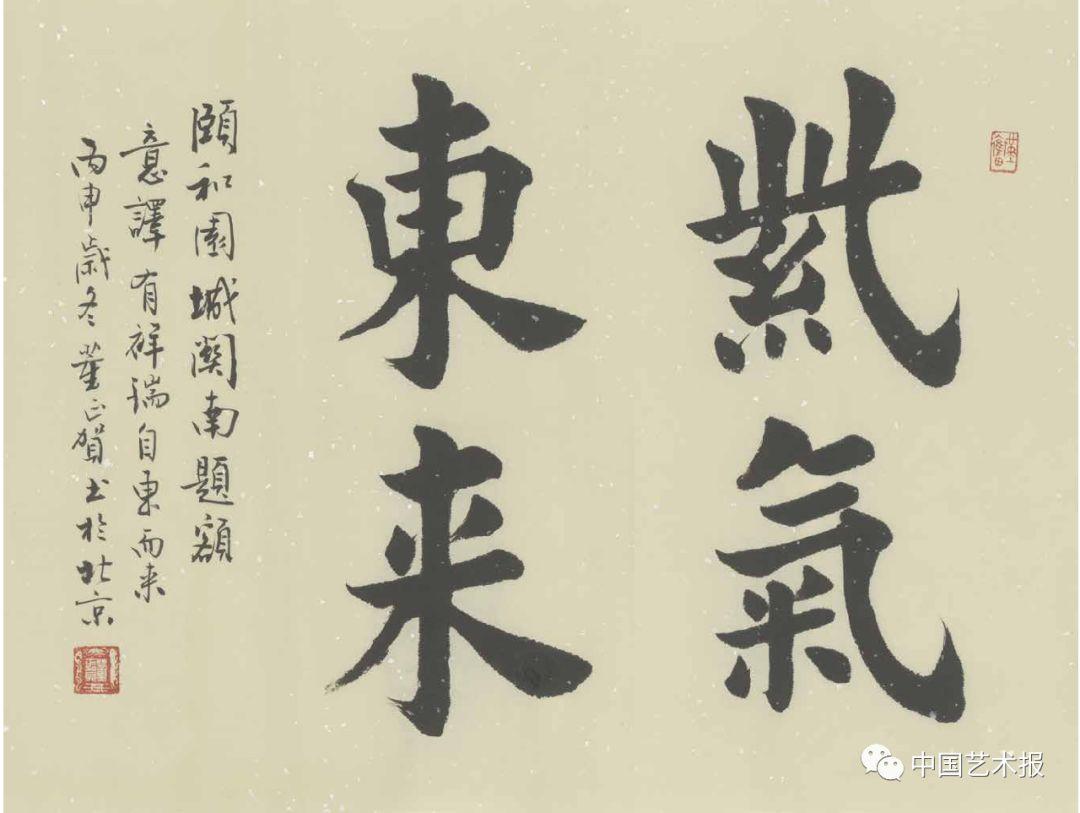 紫氣
東来
頤和園城関南題額
意譯有祥瑞自東而来
丙申歲冬董正賀书於北京
中国艺术报